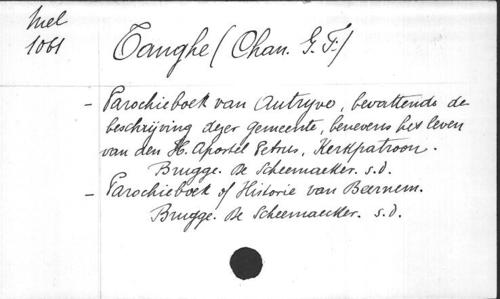 Mel
1061
Tanghe (Chan. G. F.)
- Parochieboek van Autryve, bevattende de
beschrijving dezer gemeente, benevens het leven
van den H. Apostel Petrus, Kerkpatroon.
Brugge. De Scheemaeker. s.d.
- Parochieboek of Historie van Beernem.
Brugge. De Scheemaecker. s.d.